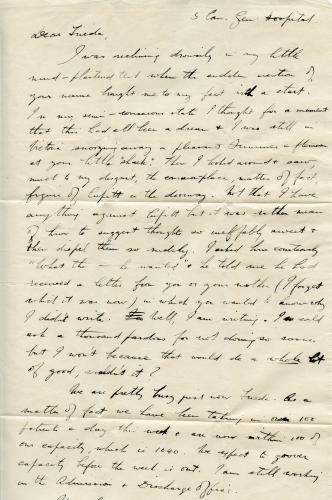 5 Can. Gen. Hospital.
Dear Frieda,
I was reclining drowsily in my little
mud-plastered tent when the sudden mention of
your name brought me to my feet with a start.
In my semi-conscious state I thought for a moment
that this had all been a dream & I was still in
Victoria snoozing away a pleasant Summer afternoon
at your little shack. Then I looked around & saw,
much to my disgust, the commonplace, matter of fact
figure of in the doorway. Not that I have
anything against but it was rather mean
of him to suggest thoughts so ineffably sweet &
then dispel them so rudely. I asked him courteously
"What the — he wanted" & he told me he had
received a letter from you or your mother (I forget
which it was now) in which you wanted to know why
I didn't write. Well, I am writing. I could
ask a thousand pardons for not doing so sooner
but I won't because that would do a whole lot
of good, wouldn't it?
We are pretty busy just now Frieda. As a
matter of fact we have been taking in over 100
patients a day this week & are now within 100 of
our capacity which is 1040. We expect to
capacity before the week is out. I am still working
in the Admission & Discharge office.